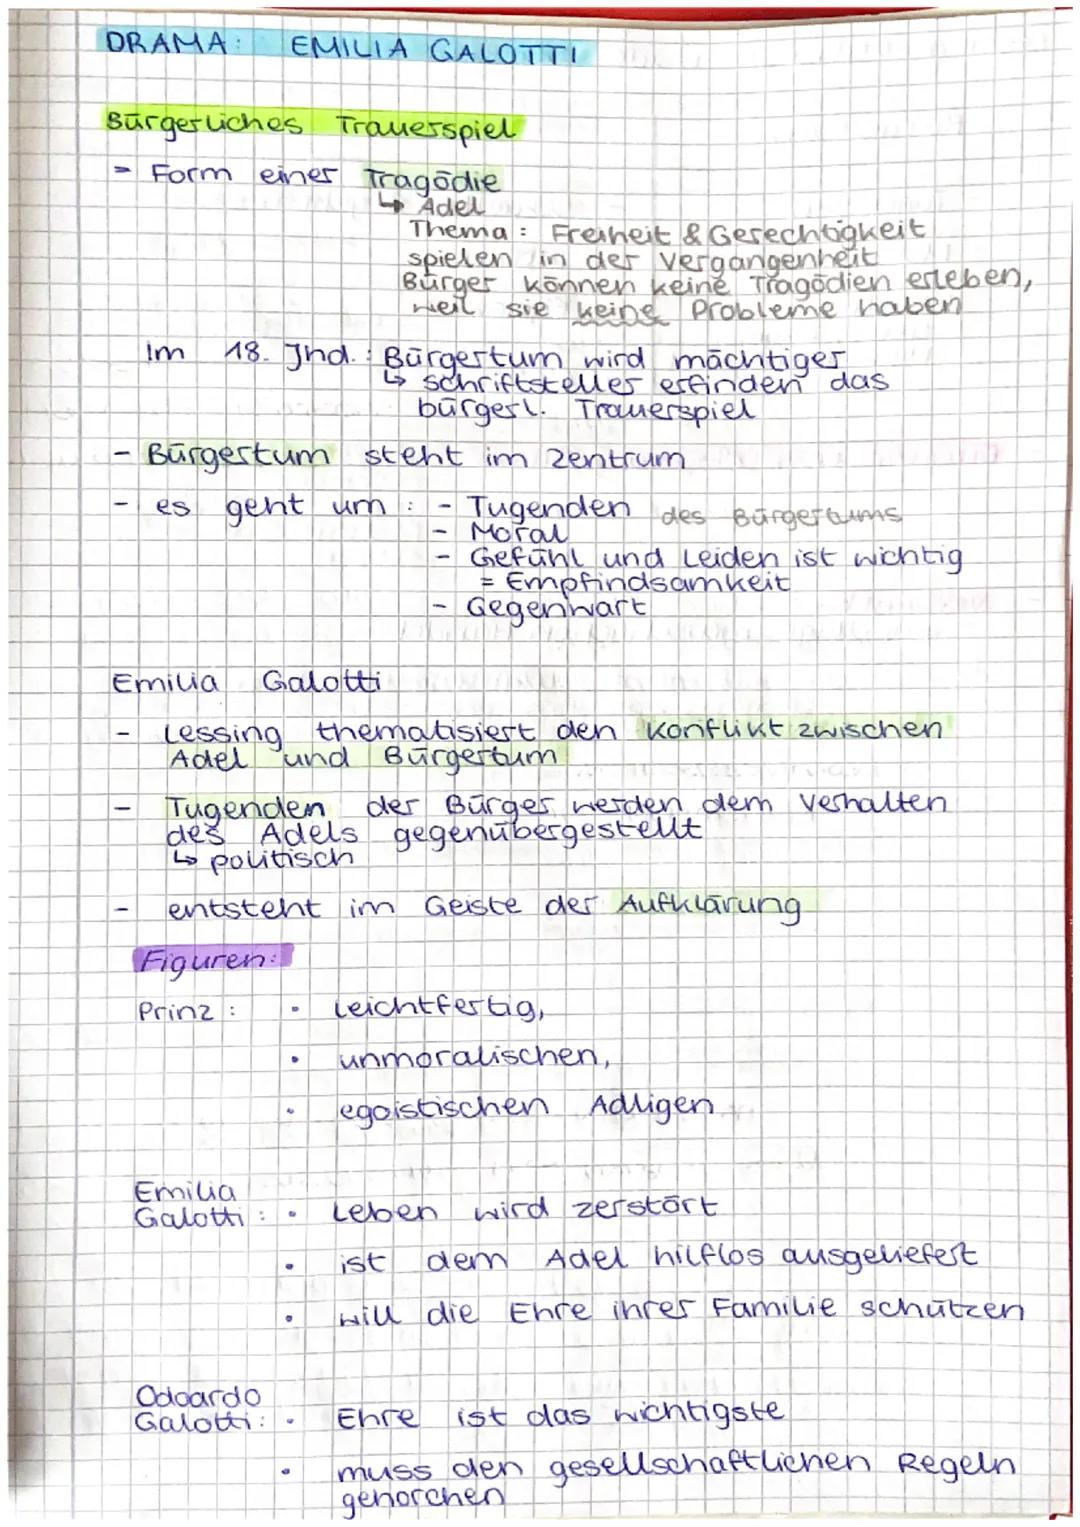 DRAMA: EMILIA GALOTTI
Bürgerliches Trauerspiel
- Form einer Tragödie
↳ Adel
Thema: Freiheit & Gerechtigkeit
spielen in der Vergangenheit
Bürger können keine Tragödien erleben,
weil sie keine Probleme haben
Im 18. Jhd.: Bürgertum wird mächtiger
↳ Schriftsteller erfinden das
bürgerl. Trauerspiel
- Bürgertum steht im Zentrum
- es geht um: - Tugenden des Bürgertums
- Moral
- Gefühl und Leiden ist wichtig
= Empfindsamkeit
- Gegenwart
Emilia Galotti
- Lessing thematisiert den Konflikt zwischen
Adel und Bürgertum
- Tugenden der Bürger werden dem Verhalten
des Adels gegenübergestellt
↳ politisch
- entsteht im Geiste der Aufklärung
Figuren:
Prinz: • leichtfertig,
• unmoralischen,
• egoistischen Adligen
Emilia
Galotti: • Leben wird zerstört
• ist dem Adel hilflos ausgeliefert
• will die Ehre ihrer Familie schützen
Odoardo
Galotti: • Ehre ist das wichtigste
• muss den gesellschaftlichen Regeln
gehorchen